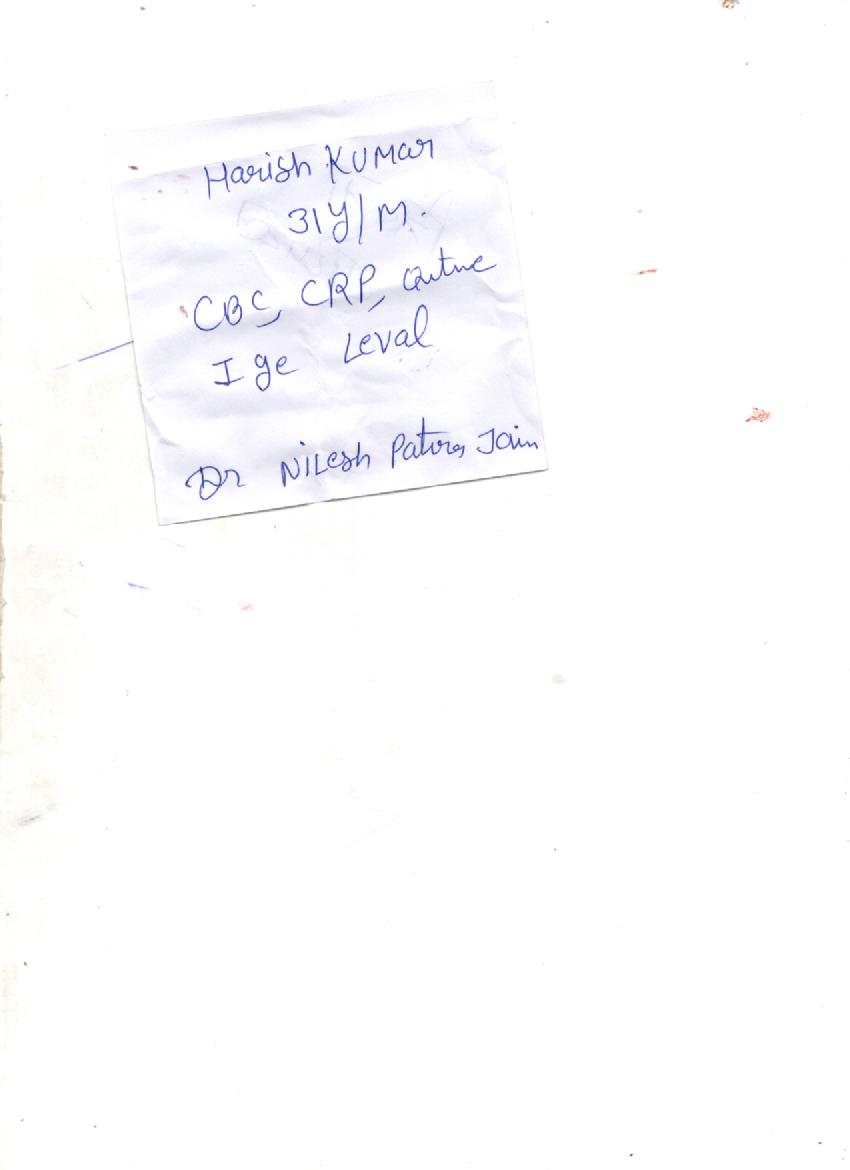 Harish KUMar
31Y/M.
CBC, CRP,
Ige Leval
Dr NILesh Jain